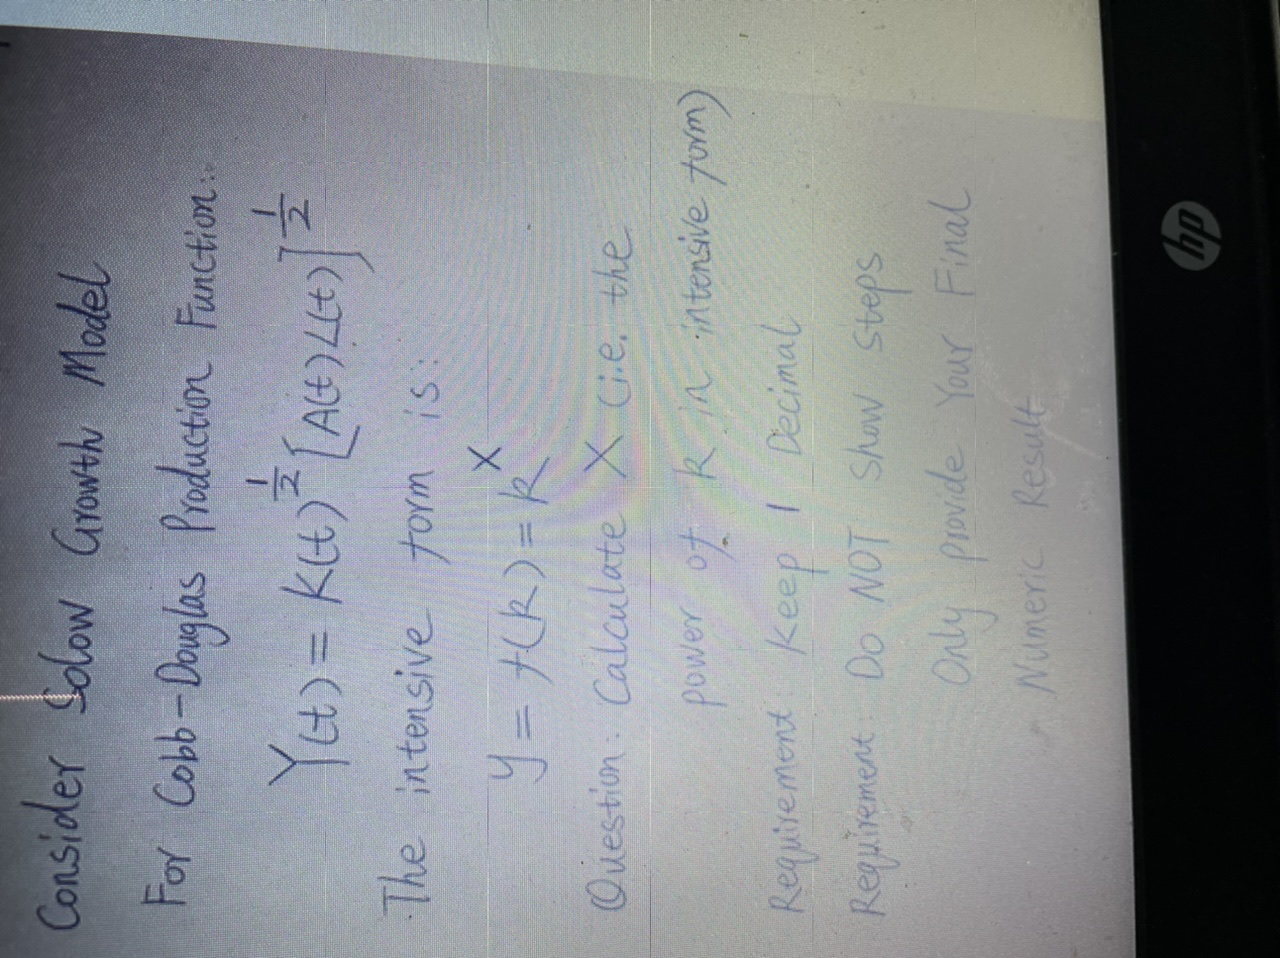 Consider Solow Growth Model
For Cobb-Douglas Production Function:
Y(t) = K(t)^{1/2} [A(t)L(t)]^{1/2}
The intensive form is:
y = f(k) = k^X
Question: Calculate X (i.e. the
power of k in intensive form)
Requirement: Keep 1 Decimal
Requirement: Do NOT Show Steps
Only Provide Your Final
Numeric Result
hp